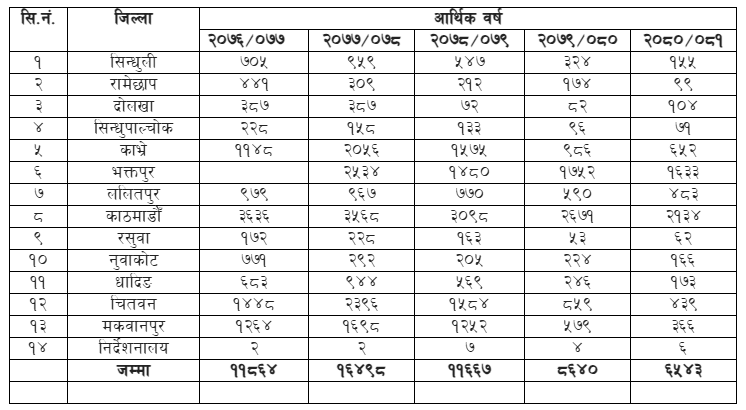 सि.नं. जिल्ला आर्थिक वर्ष
२०७६/०७७ २०७७/०७८ २०७८/०७९ २०७९/०८० २०८०/०८१
१ सिन्धुली ७०५ ९५९ ५४७ ३२४ १५५
२ रामेछाप ४४१ ३०९ २१२ १७४ ९९
३ दोलखा ३८७ ३८७ ७२ ८२ १०४
४ सिन्धुपाल्चोक २२८ १५८ १३३ ९६ ७१
५ काभ्रे ११४८ २०५६ १५७५ ९८६ ६५२
६ भक्तपुर २५३४ १४८० १७५२ १६३३
७ ललितपुर ९७९ ९६७ ७७० ५९० ४८३
८ काठमाडौँ ३६३६ ३५६८ ३०९८ २६७१ २१३४
९ रसुवा १७२ २२८ १६३ ५३ ६२
१० नुवाकोट ७७१ २९२ २०५ २२४ १६६
११ धादिङ ६८३ ९४४ ५६९ २४६ १७३
१२ चितवन १४४८ २३९६ १५८४ ८५९ ४३९
१३ मकवानपुर १२६४ १६९८ १२५२ ५७९ ३६६
१४ निर्देशनालय २ २ ७ ४ ६
जम्मा ११८६४ १६४९८ ११६६७ ८६४० ६५४३